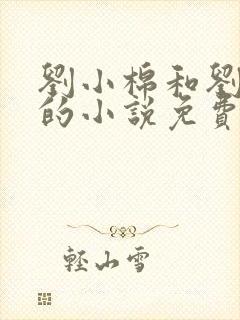 劉小棉和劉
的小説免費
輕山雪